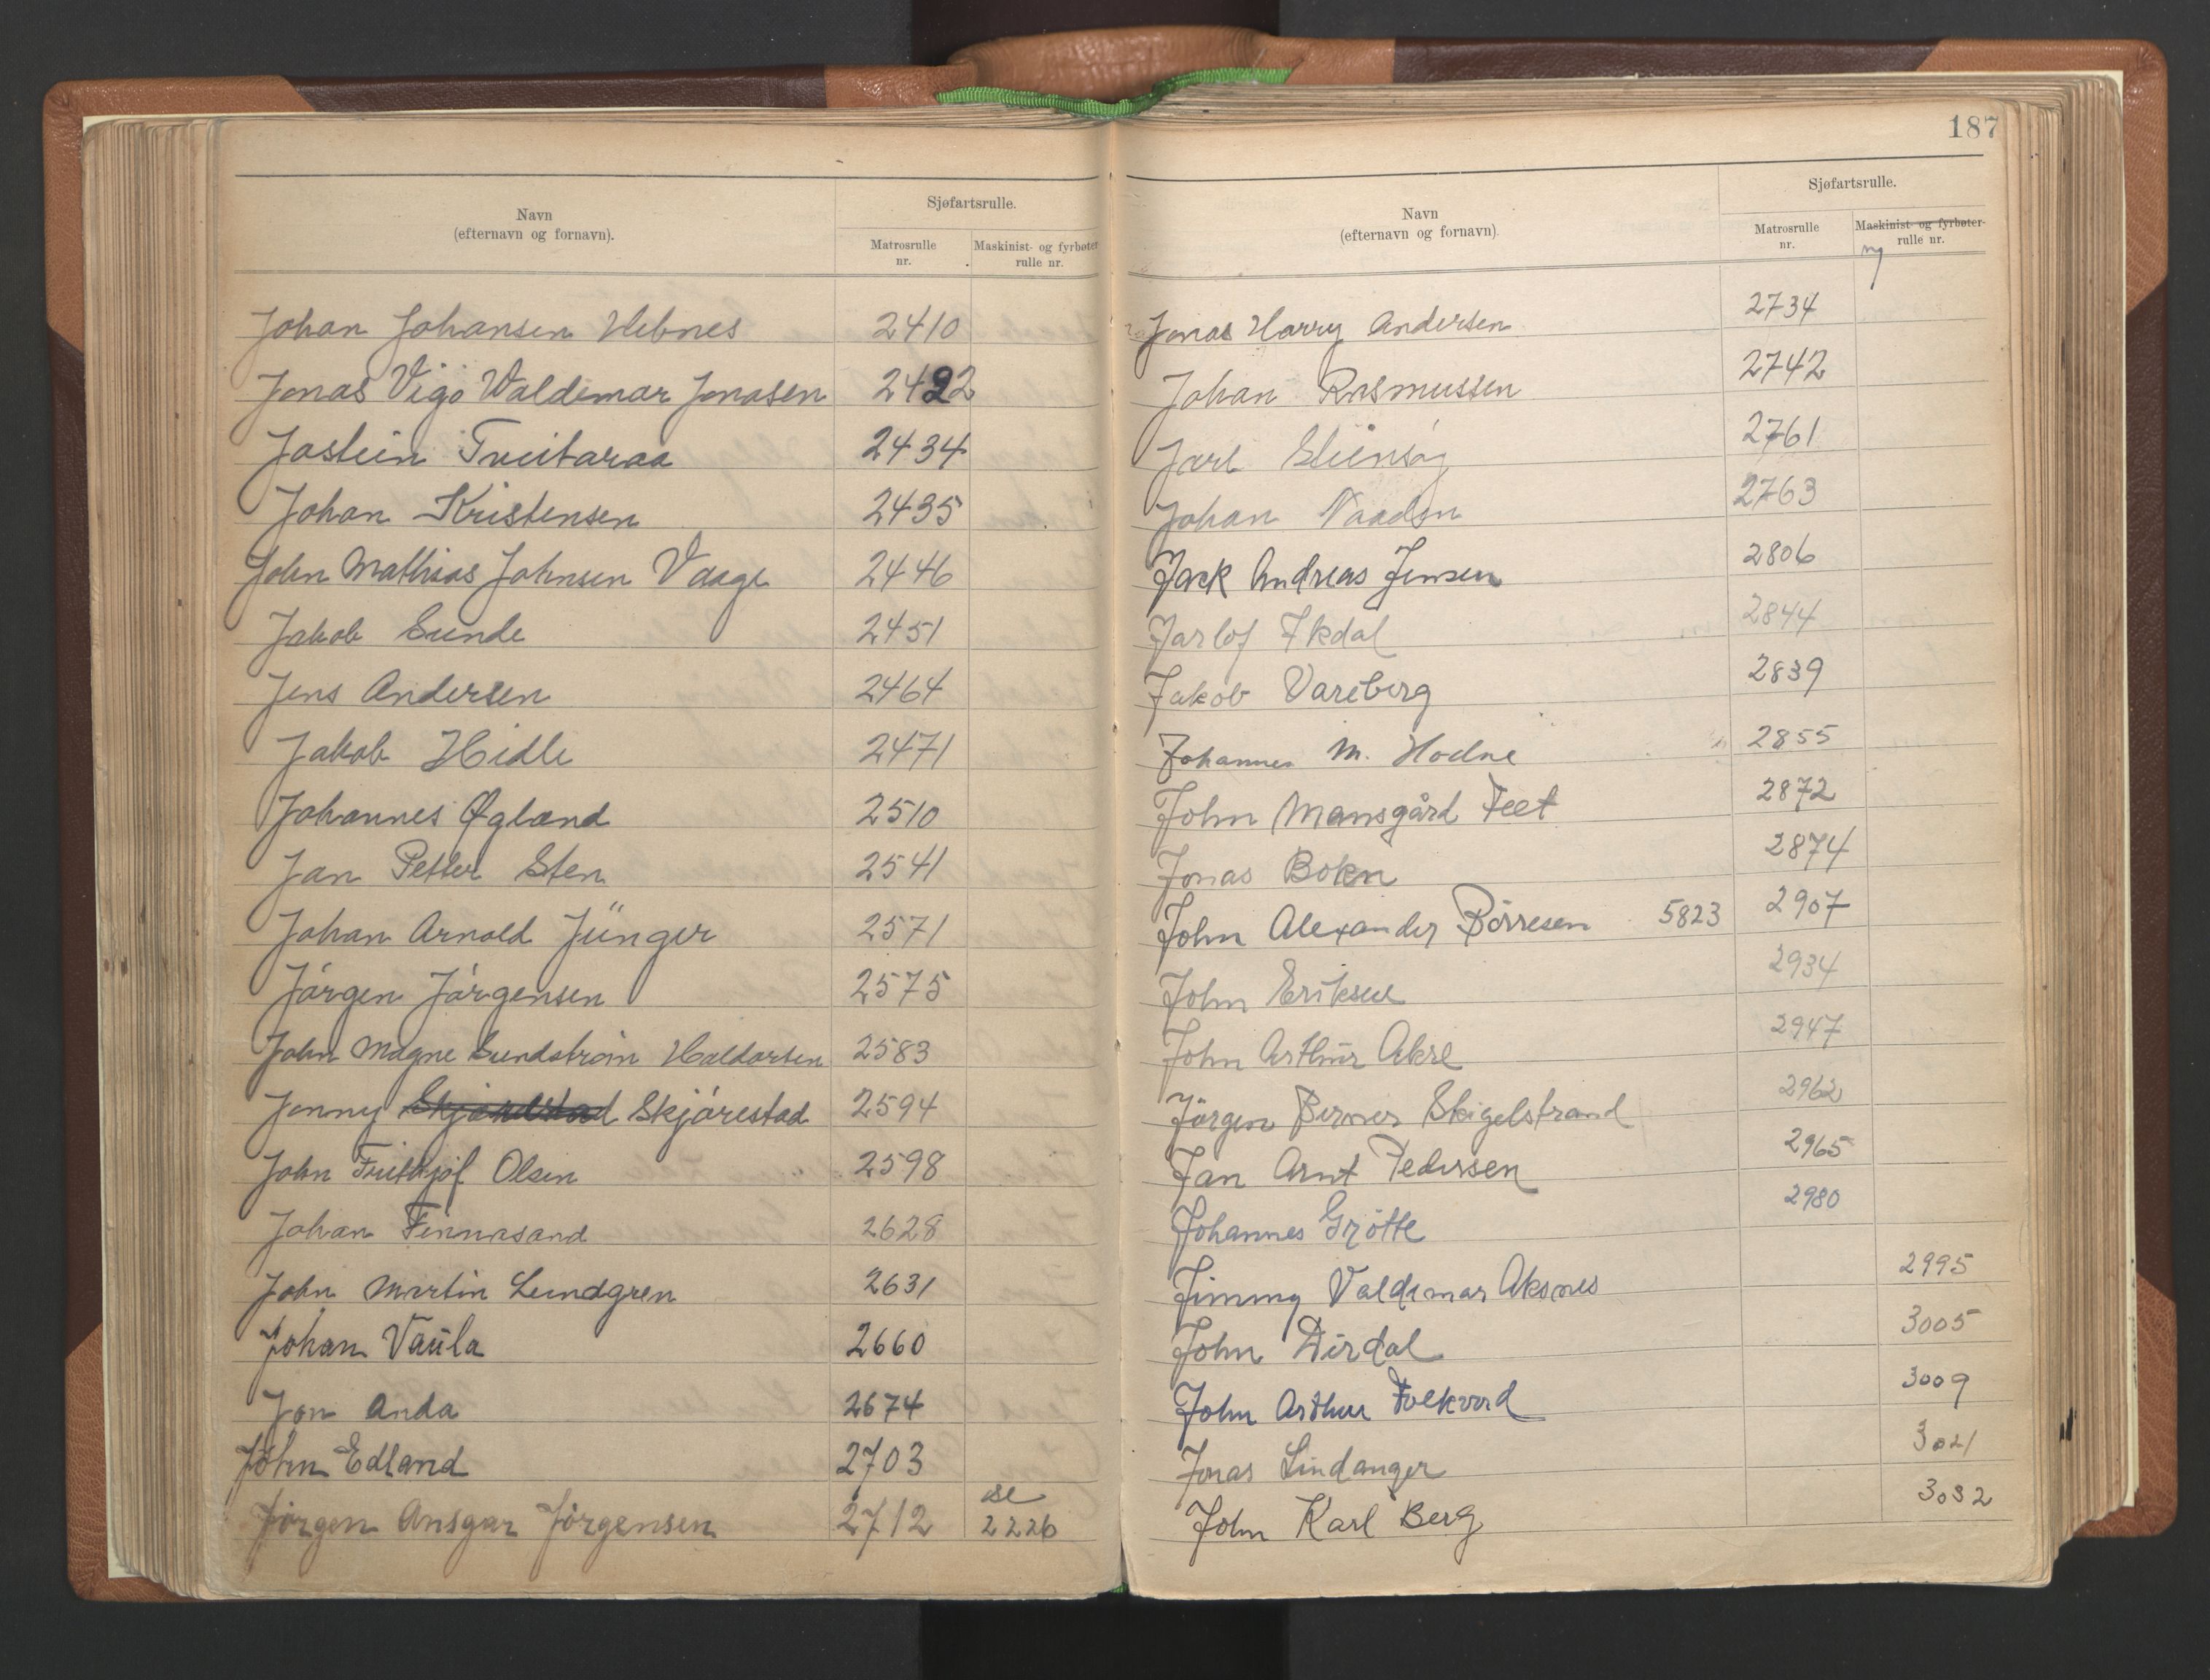 Navn
(efternavn og fornavn).
Sjøfartsrulle.
Matrosrulle nr.
Maskinist- og fyrbøter rulle nr.
Johan Johansen Hebnes 2410
Jonas Vigo Waldemar Jonasen 2422
Jostein Tveitaraa 2434
Johan Kristensen 2435
John Mathias Johnsen Vaage 2446
Jakob Sunde 2451
Jens Andersen 2464
Jakob Hidle 2471
Johannes Øgland 2510
Jan Petter Sten 2541
Johan Arnold Jünger 2571
Jörgen Jörgensen 2575
John Magne Sundström Haldorsen 2583
Jonny Skjörestad 2594
John Frithjof Olsen 2598
Johan Finnasand 2628
John Martin Lundgren 2631
Johan Vaula 2660
Jon Anda 2674
John Edland 2703
Jörgen Ansgar Jörgensen 2712 se 2226
187
Navn
(efternavn og fornavn).
Sjøfartsrulle.
Matrosrulle nr.
Maskinist- og fyrbøter- rulle nr.
ny
Jonas Harry Andersen 2734
Johan Rasmussen 2742
Jarl 2761
Johan Naadén 2763
Jack Andreas Jensen 2806
Jarlof Ikdal 2844
Jakob Vareberg 2839
Johannes M. Hodne 2855
John Mansgård Feet 2872
Jonas Bokn 2874
John Alexander Börresen 5823 2907
John Eriksen 2934
John Arthur Akre 2947
Jörgen Berner Skigelstrand 2962
Jan Arnt Pedersen 2965
Johannes Grötte 2980
Jimmy Valdemar Aksnes 2995
John Dirdal 3005
John Arthur Folkvord 3009
Jonas Lindanger 3021
John Karl Berg 3032